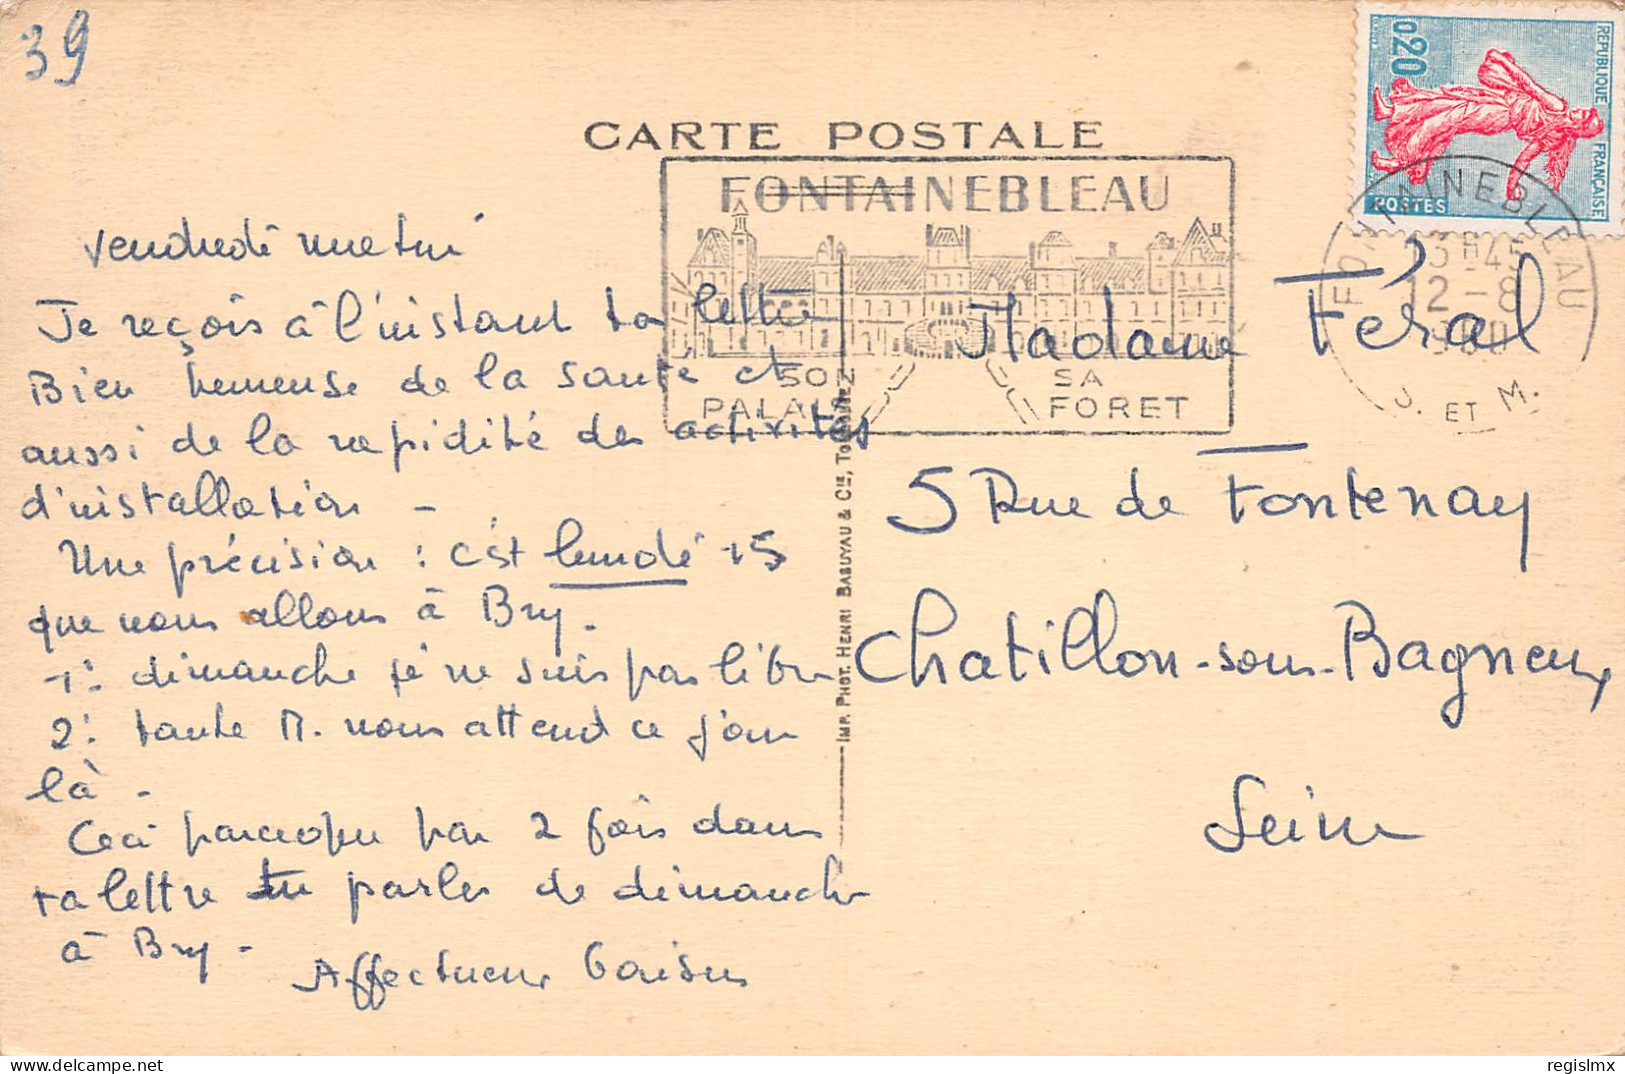 39
CARTE POSTALE
FONTAINEBLEAU
SON PALAIS
SA FORET
0,20
REPUBLIQUE FRANÇAISE
POSTES
FONTAINEBLEAU
13H45
12-8
1960
S. ET M.
vendredi matin
Je reçois à l'instant ta lettre
Bien heureuse de la santé et
aussi de la rapidité des activités
d'installation -
Une précision : c'est lundi 15
que nous allons à Bry.
1: dimanche je ne suis pas libre
2: tante M. nous attend ce jour
là -
Ceci parce que par 2 fois dans
ta lettre tu parles de dimanche
à Bry -
Affectueux baisers
IMP. PHOT. HENRI BASUYAU & CIE, TOULOUSE
Madame Féral
5 Rue de Fontenay
Chatillon-sous-Bagneux
Seine
regislmx